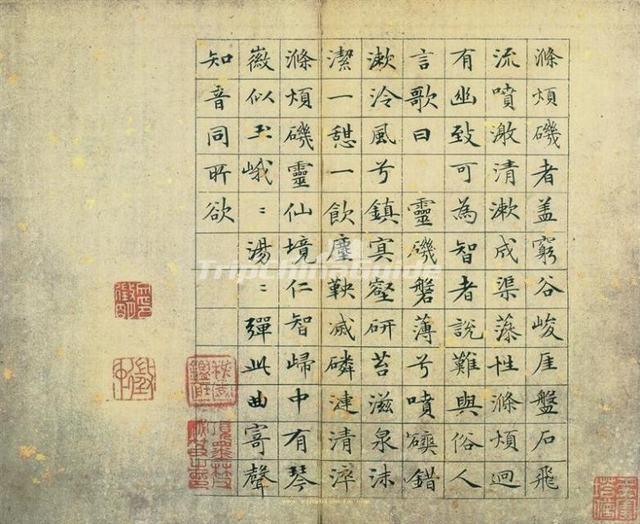 滌煩磯者盖窮谷峻厓盤石飛
流噴激清漱成渠藻性滌煩迥
有幽致可為智者説難與俗人
言歌曰 靈磯磐薄兮噴錯
漱泠風兮鎮寘壑研苔滋泉沫
潔一憇一飲塵鞅滅磷漣清淬
滌煩磯靈仙境仁智歸中有琴
徽似玉峨〻湯〻彈此曲寄聲
知音同所欲
TripChinaGuide